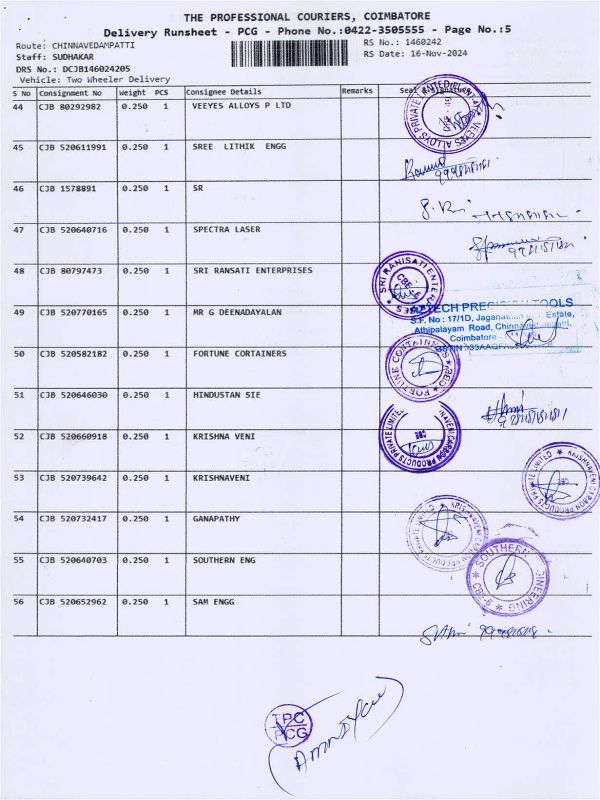 THE PROFESSIONAL COURIERS, COIMBATORE
Delivery Runsheet - PCG - Phone No.:0422-3505555 - Page No.:5
Route: CHINNAVEDAMPATTI
RS No.: 1460242
Staff: SUDHAKAR
RS Date: 16-Nov-2024
DRS No.: DCJB146024205
Vehicle: Two Wheeler Delivery
S No Consignment No Weight PCS Consignee Details Remarks Seal & Signature
44 CJB 80292982 0.250 1 VEEYES ALLOYS P LTD
VEEYES ALLOYS PRIVATE LIMITED
45 CJB 520611991 0.250 1 SREE LITHIK ENGG
46 CJB 1578891 0.250 1 SR
47 CJB 520640716 0.250 1 SPECTRA LASER
48 CJB 80797473 0.250 1 SRI RANSATI ENTERPRISES
SRI RANISATI
49 CJB 520770165 0.250 1 MR G DEENADAYALAN
TECH TOOLS
S.F. No : 17/1D, Estate,
Athipalayam Road,
Coimbatore -
50 CJB 520582182 0.250 1 FORTUNE CORTAINERS
FORTUNE CONTAINERS
51 CJB 520646030 0.250 1 HINDUSTAN SIE
52 CJB 520660918 0.250 1 KRISHNA VENI
CARBON PRODUCTS PRIVATE LIMITED
53 CJB 520739642 0.250 1 KRISHNAVENI
KRISHNAVENI CARBON PRODUCTS PRIVATE LIMITED
54 CJB 520732417 0.250 1 GANAPATHY
55 CJB 520640703 0.250 1 SOUTHERN ENG
SOUTHERN
56 CJB 520652962 0.250 1 SAM ENGG
TPC
PCG